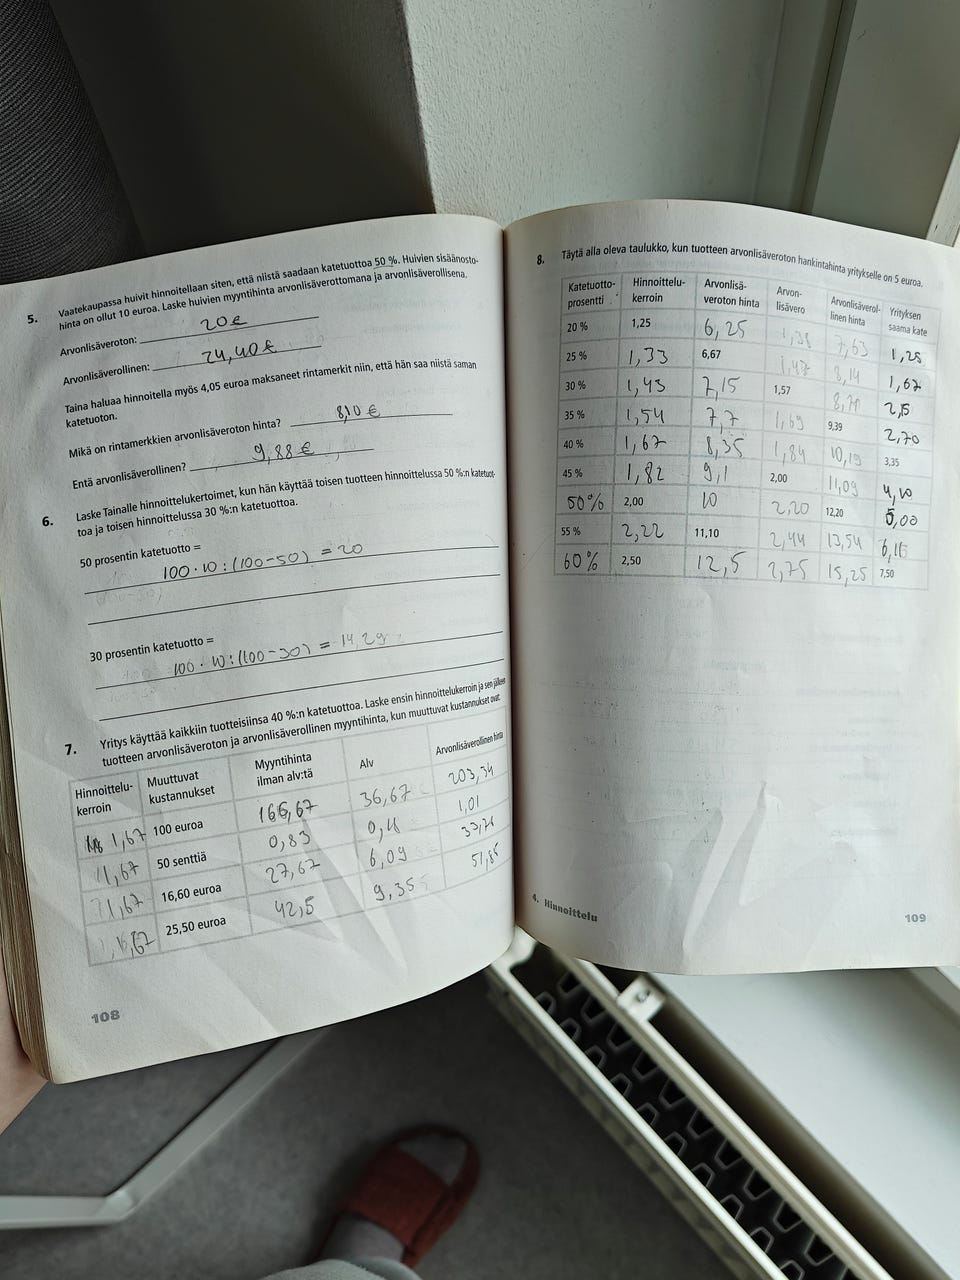 5. Vaatekaupassa huivit hinnoitellaan siten, että niistä saadaan katetuottoa 50 %. Huivien sisäänosto-
hinta on ollut 10 euroa. Laske huivien myyntihinta arvonlisäverottomana ja arvonlisäverollisena.
Arvonlisäveroton: 20 €
Arvonlisäverollinen: 24,40 €
Taina haluaa hinnoitella myös 4,05 euroa maksaneet rintamerkit niin, että hän saa niistä saman
katetuoton.
Mikä on rintamerkkien arvonlisäveroton hinta? 8,10 €
Entä arvonlisäverollinen? 9,88 €
6. Laske Tainalle hinnoittelukertoimet, kun hän käyttää toisen tuotteen hinnoittelussa 50 %:n katetuot-
toa ja toisen hinnoittelussa 30 %:n katetuottoa.
50 prosentin katetuotto =
100 · 10 : (100-50) = 20
30 prosentin katetuotto =
100 · 10 : (100-30) = 14,29
7. Yritys käyttää kaikkiin tuotteisiinsa 40 %:n katetuottoa. Laske ensin hinnoittelukerroin ja sen jälkeen
tuotteen arvonlisäveroton ja arvonlisäverollinen myyntihinta, kun muuttuvat kustannukset ovat
Hinnoittelu-
kerroin
Muuttuvat
kustannukset
Myyntihinta
ilman alv:tä
Alv
Arvonlisäverollinen hinta
1,67 100 euroa 166,67 36,67 203,34
1,67 50 senttiä 0,83 1,01
1,67 16,60 euroa 27,67 6,09
25,50 euroa 42,5 9,35 51,85
108
8. Täytä alla oleva taulukko, kun tuotteen arvonlisäveroton hankintahinta yritykselle on 5 euroa.
Katetuotto-
prosentti
Hinnoittelu-
kerroin
Arvonlisä-
veroton hinta
Arvon-
lisävero
Arvonlisäverol-
linen hinta
Yrityksen
saama kate
20 % 1,25 6,25 1,38 7,63 1,25
25 % 1,33 6,67 1,47 8,14 1,67
30 % 1,43 7,15 1,57
35 % 1,54 7,7 1,69 9,39 2,70
40 % 1,67 8,35 1,84 10,19 3,35
45 % 1,82 9,1 2,00 11,09 4,10
50 % 2,00 10 2,20 12,20 5,00
55 % 2,22 11,10 2,44 13,54
60 % 2,50 12,5 2,75 15,25 7,50
4. Hinnoittelu
109